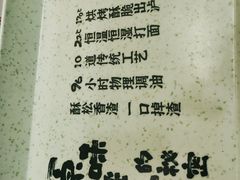 170℃ 烘烤酥脆出炉
22℃ 恒温恒湿打面
10 道传统工艺
96 小时物理调油
酥松香渣 一口掉渣
的秘密